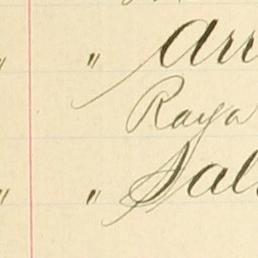 " " Arr
Raya
" " Sal